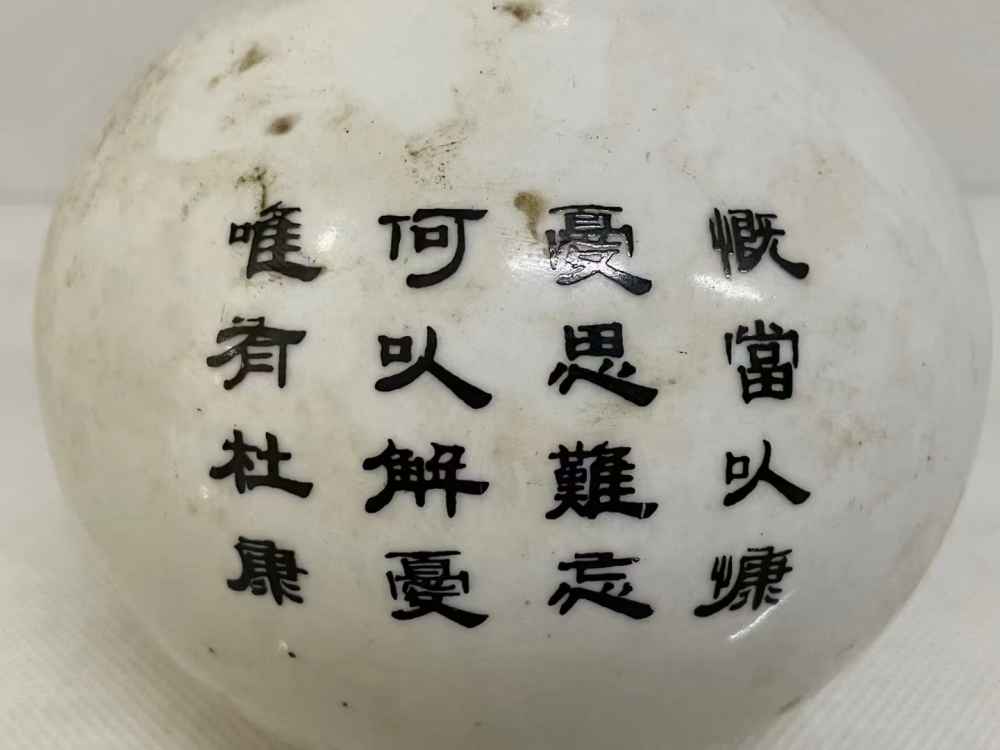 慨當以慷
憂思難忘
何以解憂
唯有杜康